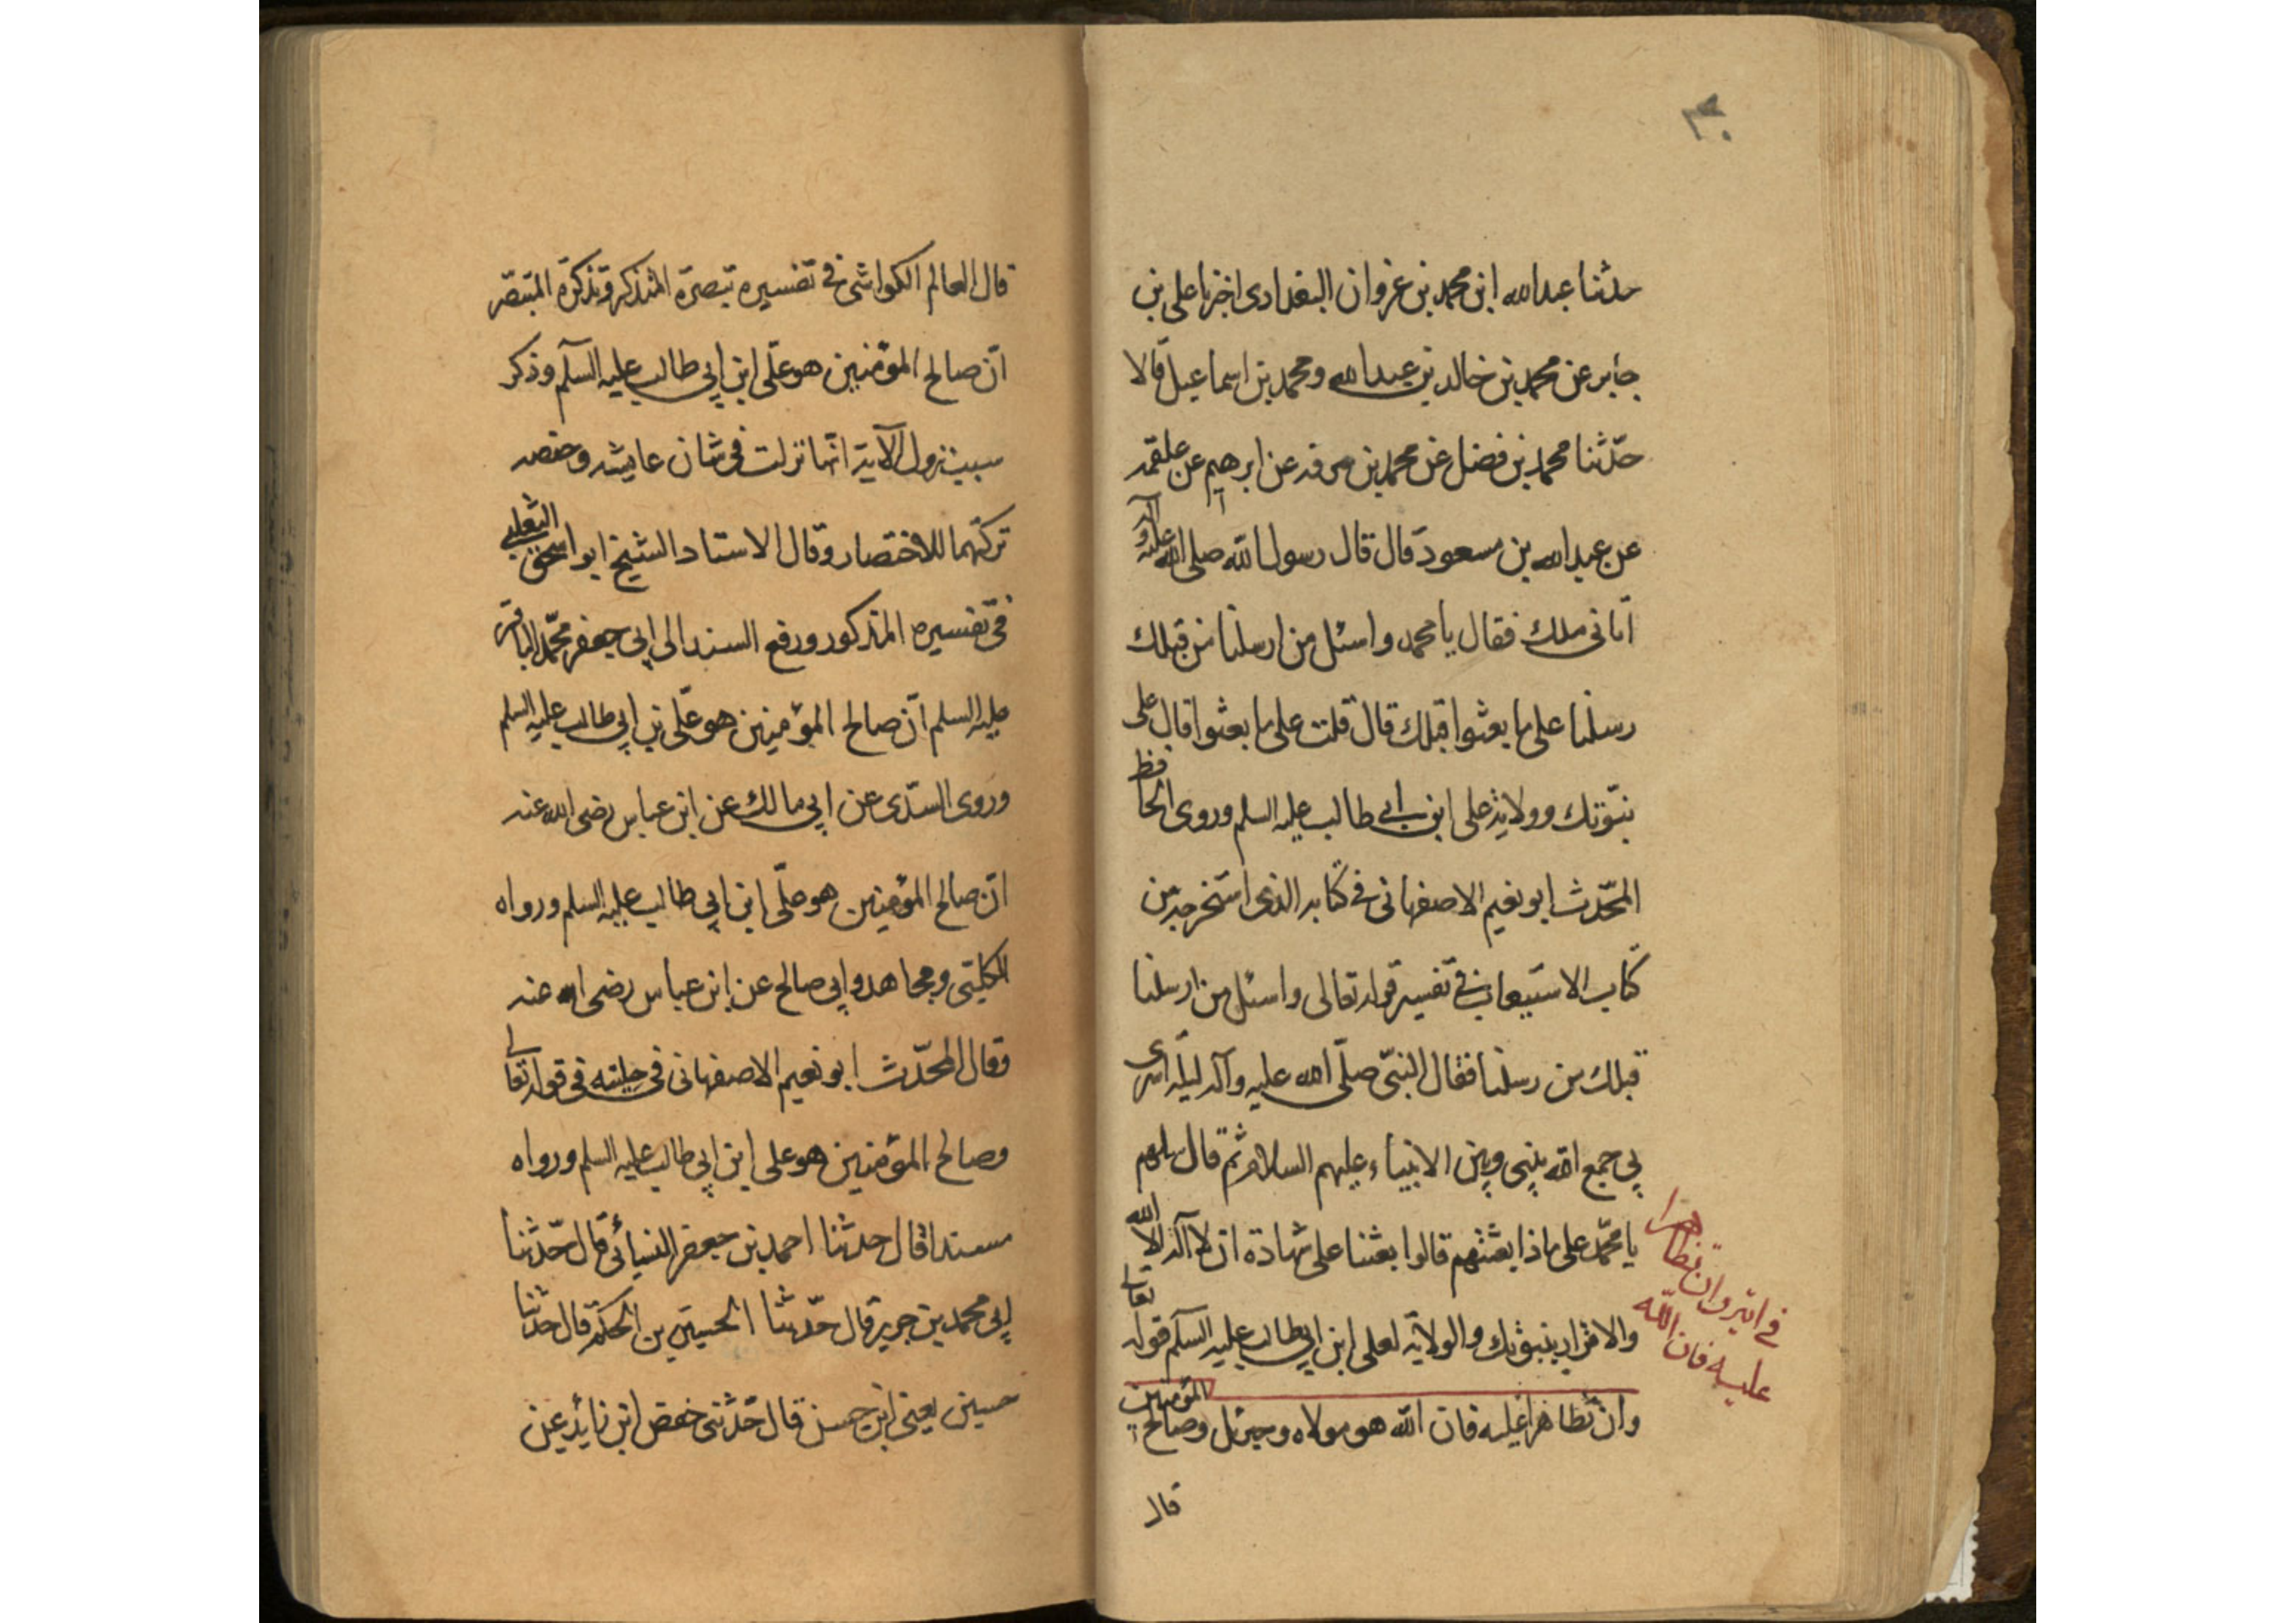 ٣٠
حدثنا عبدالله ابن محمد بن غزوان البغدادى اخبرنا على بن
جابر عن محمد بن خالد بن عبدالله ومحمد بن اسماعيل قالا
حدّثنا محمد بن فضل عن محمد بن سوقه عن ابرهيم عن علقمه
عن عبدالله بن مسعود قال قال رسول الله صلى الله عليه وآله
اتانى ملك فقال يا محمد واسئل من ارسلنا من قبلك
رسلنا على ما بعثوا قبلك قال قلت على ما بعثوا قال على
نبوّتك وولاية على ابن ابى طالب عليه السلم وروى الحافظ
المحّدث ابو نعيم الاصفهانى فى كتابه الذى استخرجه من
كتاب الاستيعاب فى تفسير قوله تعالى واسئل من ارسلنا
قبلك من رسلنا فقال النبّى صلّى الله عليه وآله ليلة اسرى
بى جمع الله بينى وبين الانبياء عليهم السلام ثم قال سلهم
يا محمّد على ماذا بعثتهم قالوا بعثنا على شهادة ان لا آله الا الله
والاقرار بنبوتك والولاية لعلى ابن ابى طالب عليه السلم قوله تعالى
وان تظاهرا عليه فان الله هو مولاه وجبرئل وصالح المؤمنين
فى اية وان تظاهرا
عليه فان الله
قال
قال العالم الكواشى فى تفسيره تبصرة المتذكر وتذكرة المتبصّر
انّ صالح المؤمنين هو علّى ابن ابى طالب عليه السلم وذكر
سبب نزول الآية انّها نزلت فى شان عايشه وحفصه
تركتهما للاختصار وقال الاستاد الشيخ ابو اسحق الثعلبى
فى تفسيره المذكور ورفع السند الى ابى جعفر محمّد الباقر
عليه السلم انّ صالح المؤمنين هو علّى بن ابى طالب عليه السلم
وروى السّدى عن ابى مالك عن ابن عباس رضى الله عنه
انّ صالح المؤمنين هو علّى ابن ابى طالب عليه السلم ورواه
الكلبّى ومجاهد وابى صالح عن ابن عباس رضى الله عنه
وقال المحّدث ابو نعيم الاصفهانى فى حليته فى قوله تعالى
وصالح المؤمنين هو على ابن ابى طالب عليه السلم ورواه
مسندا قال حدثنا احمد بن جعفر النسائى قال حّدثنا
ابى محمد بن جرير قال حّدثنا الحسين بن الحكم قال حدثنا
حسين يعنى ابن حسن قال حّدثنى حفص ابن عن